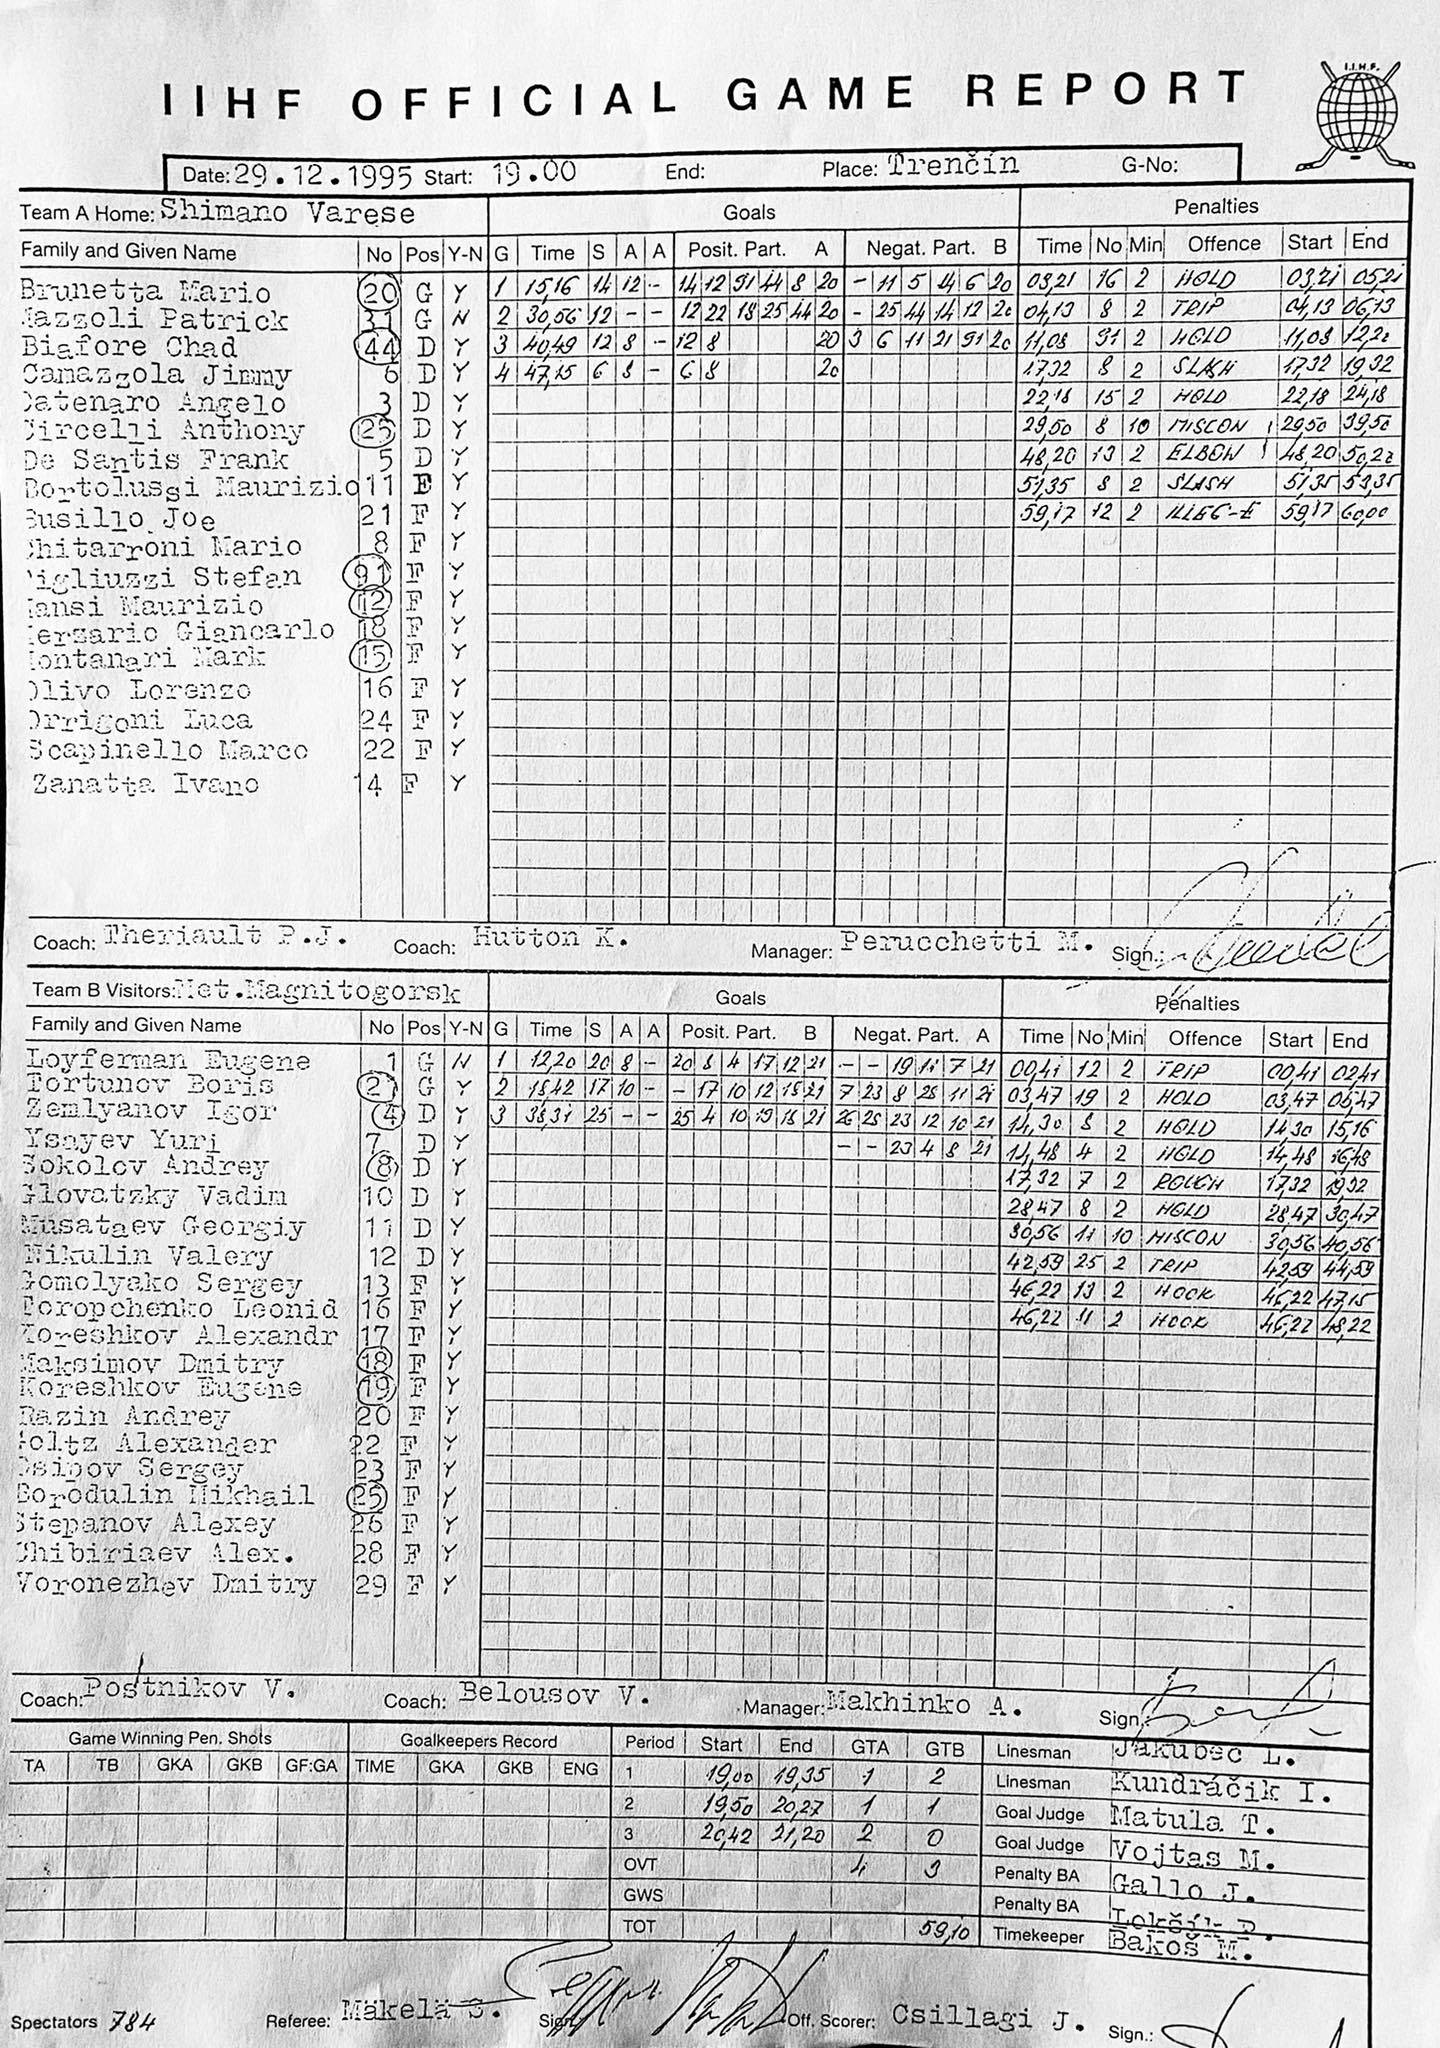 I.I.H.F.
IIHF OFFICIAL GAME REPORT
Date: 29.12.1995 Start: 19.00 End: Place: Trenčín G-No:
Team A Home: Shimano Varese Goals Penalties
Family and Given Name No Pos Y-N G Time S A A Posit. Part. A Negat. Part. B Time No Min Offence Start End
Brunetta Mario 20 G Y 1 15,16 14 12 - 14 12 91 44 8 20 - 11 5 4 6 20 03,21 16 2 HOLD 03,21 05,21
Mazzoli Patrick 31 G N 2 30,56 12 - - 12 22 18 25 44 20 - 25 44 14 12 20 04,13 8 2 TRIP 04,13 06,13
Biafore Chad 44 D Y 3 40,49 12 8 - 12 8 20 3 6 11 21 91 20 11,08 91 2 HOLD 11,08 12,20
Camazzola Jimmy 6 D Y 4 47,15 6 8 - 6 8 20 17,32 8 2 SLASH 17,32 19,32
Catenaro Angelo 3 D Y 22,18 15 2 HOLD 22,18 24,18
Circelli Anthony 25 D Y 29,50 8 10 MISCON 29,50 39,50
De Santis Frank 5 D Y 48,20 13 2 ELBOW 48,20 50,20
Bortolussi Maurizio 11 F Y 51,35 8 2 SLASH 51,35 53,35
Busillo Joe 21 F Y 59,17 12 2 ILLEG-E 59,17 60,00
Chitarroni Mario 8 F Y
Figliuzzi Stefan 91 F Y
Mansi Maurizio 12 F Y
Merzario Giancarlo 18 F Y
Montanari Mark 15 F Y
Olivo Lorenzo 16 F Y
Orrigoni Luca 24 F Y
Scapinello Marco 22 F Y
Zanatta Ivano 14 F Y
Coach: Theriault P.J. Coach: Hutton K. Manager: Perucchetti M. Sign.:
Team B Visitors: Met.Magnitogorsk Goals Penalties
Family and Given Name No Pos Y-N G Time S A A Posit. Part. B Negat. Part. A Time No Min Offence Start End
Loyferman Eugene 1 G N 1 12,20 20 8 - 20 8 4 17 12 21 - - 19 11 7 21 00,41 12 2 TRIP 00,41 02,41
Tortunov Boris 21 G Y 2 18,42 17 10 - - 17 10 12 18 21 7 23 8 28 11 21 03,47 19 2 HOLD 03,47 05,47
Zemlyanov Igor 4 D Y 3 38,31 25 - - 25 4 10 19 18 21 26 28 23 12 10 21 14,30 8 2 HOLD 14,30 15,16
Ysayev Yuri 7 D Y - - 23 4 8 21 14,48 4 2 HOLD 14,48 16,48
Sokolov Andrey 8 D Y 17,32 7 2 ROUGH 17,32 19,32
Glovatzky Vadim 10 D Y 28,47 8 2 HOLD 28,47 30,47
Musataev Georgiy 11 D Y 30,56 11 10 MISCON 30,56 40,56
Nikulin Valery 12 D Y 42,59 25 2 TRIP 42,59 44,59
Gomolyako Sergey 13 F Y 46,22 13 2 HOOK 46,22 47,15
Toropchenko Leonid 16 F Y 46,22 11 2 HOOK 46,22 48,22
Koreshkov Alexandr 17 F Y
Maksimov Dmitry 18 F Y
Koreshkov Eugene 19 F Y
Razin Andrey 20 F Y
Goltz Alexander 22 F Y
Osipov Sergey 23 F Y
Borodulin Mikhail 25 F Y
Stepanov Alexey 26 F Y
Chibiriaev Alex. 28 F Y
Voronezhev Dmitry 29 F Y
Coach: Postnikov V. Coach: Belousov V. Manager: Makhinko A. Sign.:
Game Winning Pen. Shots Goalkeepers Record Period Start End GTA GTB Linesman Jakubec L.
TA TB GKA GKB GF:GA TIME GKA GKB ENG 1 19,00 19,35 1 2 Linesman Kundráčik I.
2 19,50 20,27 1 1 Goal Judge Matula T.
3 20,42 21,20 2 0 Goal Judge Vojtas M.
OVT 4 3 Penalty BA Gallo J.
GWS Penalty BA Lokšík P.
TOT 59,10 Timekeeper Bakoš M.
Spectators 784 Referee: Mäkelä S. Sign. Off. Scorer: Csillagi J. Sign.: